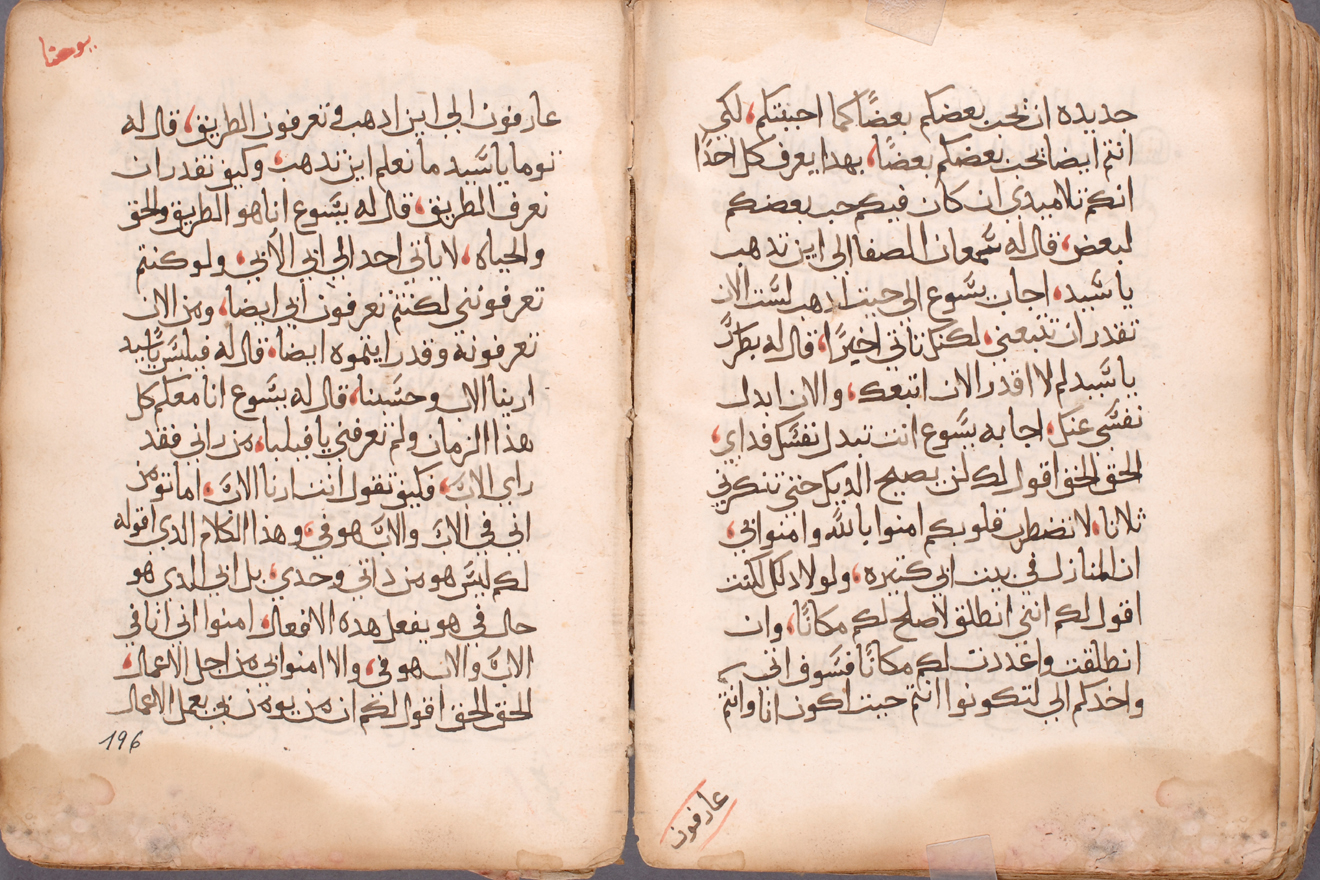 جديده ان تحب بعضكم بعضًا كما احببتكم، لكي
انتم ايضا تحب بعضكم بعضًا، بهدا يعرف كل احدًا
انكم تلاميدي ان كان فيكم حب بعضكم
لبعض، قال له سمعون الصفا الى اين تدهب
يا سيد، اجاب يسوع الى حيت ادهب لست الان
تقدر ان تتبعني، لكنك تاتي اخيرًا، قال له بطرس
يا سيد لم لا اقدر الان اتبعك، والان ابدل
نفسى عنك، اجابه يسوع انت تبدل نفسك فداي،
الحق الحق اقول لك لن يصيح الديك حتى تنكرني
ثلاثا، لا تضطرب قلوبكم امنوا بالله وامنوا بي،
ان المنازل في بيت ابي كتيره، ولولا دلك لكنت
اقول لكم انني انطلق لاصلح لكم مكانًا، وان
انطلقت واعددت لكم مكانًا فسوف اتي
واخدكم الي لتكونوا انتم حيت اكون انا وانتم
عارفون
يوحنا
عارفون الى اين ادهب وتعرفون الطريق، قال له
توما يا سيد ما نعلم اين تدهب، وكيف نقدر ان
نعرف الطريق، قال له يسوع انا هو الطريق والحق
والحياه، لا ياتي احد الي ابي الا بي، ولو كنتم
تعرفونني لكنتم تعرفون ابي ايضا، ومن الان
تعرفونه وقد رايتموه ايضا، قال له فيلبس يا سيد
ارينا الاب وحسبنا، قال له يسوع انا معكم كل
هذا الزمان ولم تعرفني يا فيلبا، من راني فقد
راي الاب، فكيف تقول انت ارنا الاب، اما تومن
اني في الاب والاب هو في، وهذا الكلام الدي اقوله
لكم ليس هو من داتي وحدي، بل ابي الدي هو
حال في هو يفعل هده الافعال، امنوا اني انا في
الاب والاب هو في، والا امنوا بي من اجل الاعمال،
الحق الحق اقول لكم ان من يومن بي يعمل الاعمال
196